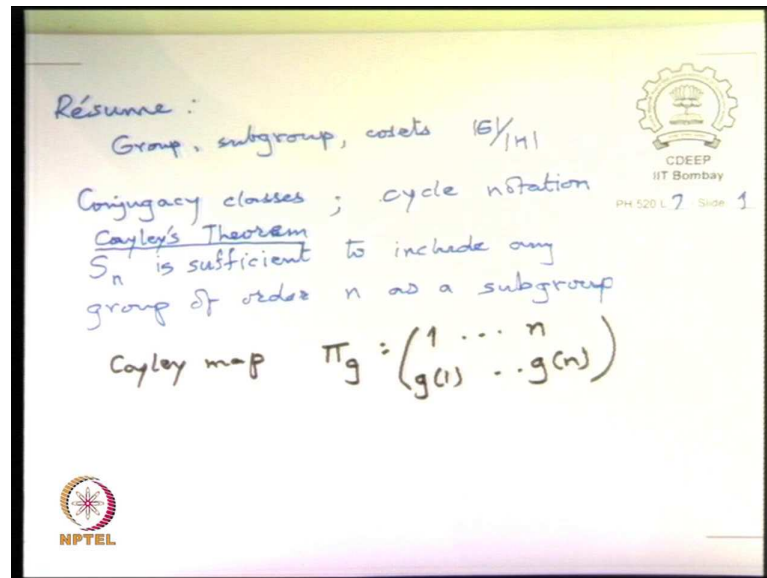 Résume :
Group, subgroup, cosets |G|/|H|
CDEEP
IIT Bombay
Conjugacy classes ; cycle notation
PH 520 L 7 Slide 1
Cayley's Theorem
Sn is sufficient to include any
group of order n as a subgroup
Cayley map πg : (1 ... n
g(1) .. g(n))
NPTEL